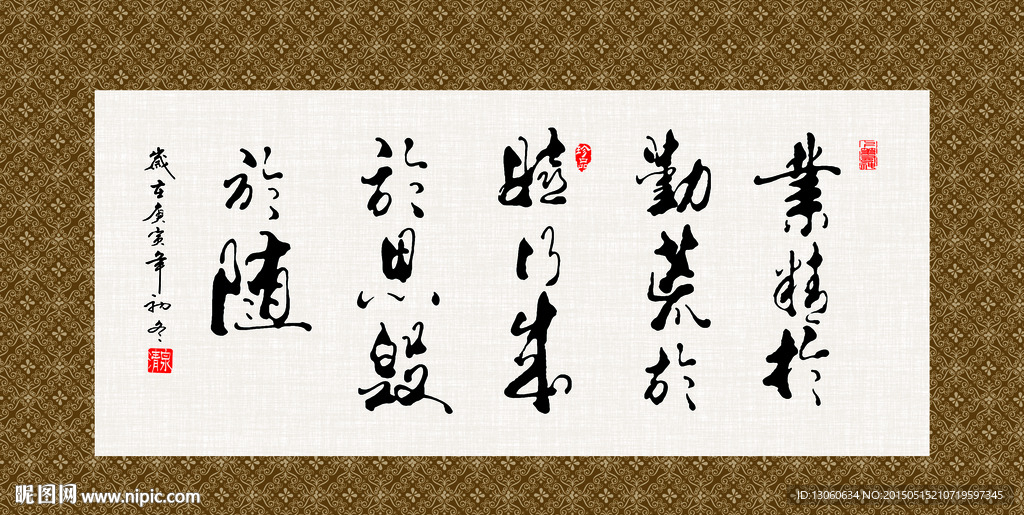 業精於
勤荒於
嬉行成
於思毀
於随
歲在庚寅年初冬
珍品
昵图网 www.nipic.com
ID:13060634 NO:20150515210719597345